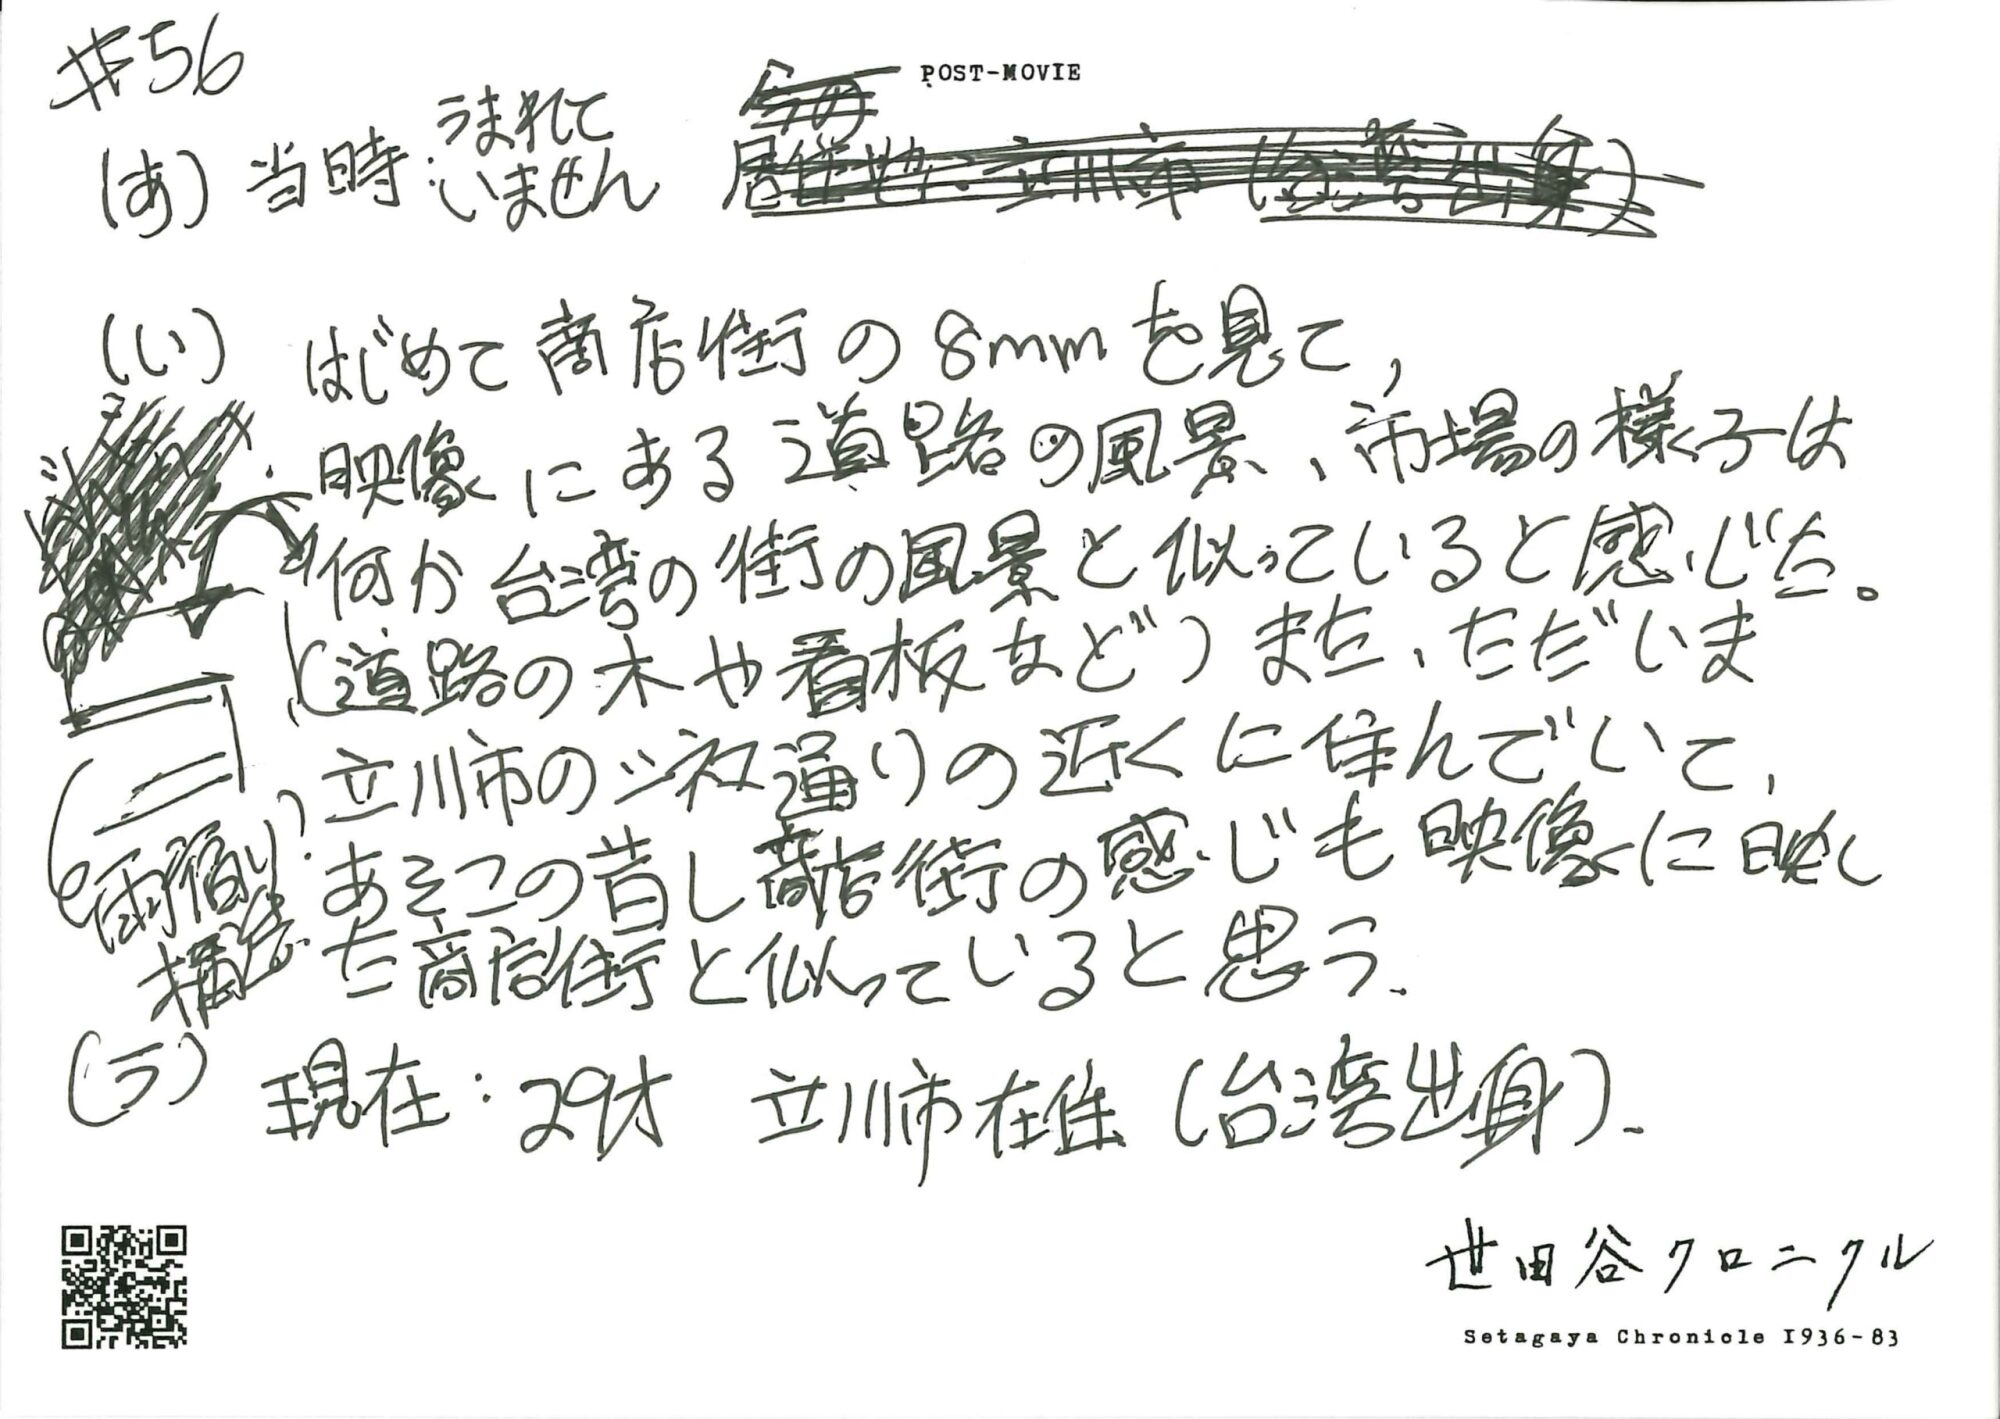 #56
POST-MOVIE
(あ) 当時:うまれて
いません
今の
居住地:立川市(台湾出身)
(い) はじめて商店街の8mmを見て,
映像にある道路の風景、市場の様子は
何か台湾の街の風景と似っていると感じた。
(道路の木や看板など) また、ただいま
立川市のシネマ通りの近くに住んでいて,
あそこの昔し商店街の感じも映像に映し
た商店街と似っていると思う.
雨宿り
(う) 現在:29才 立川市在住 (台湾出身).
世田谷クロニクル
Setagaya Chronicle 1936-83